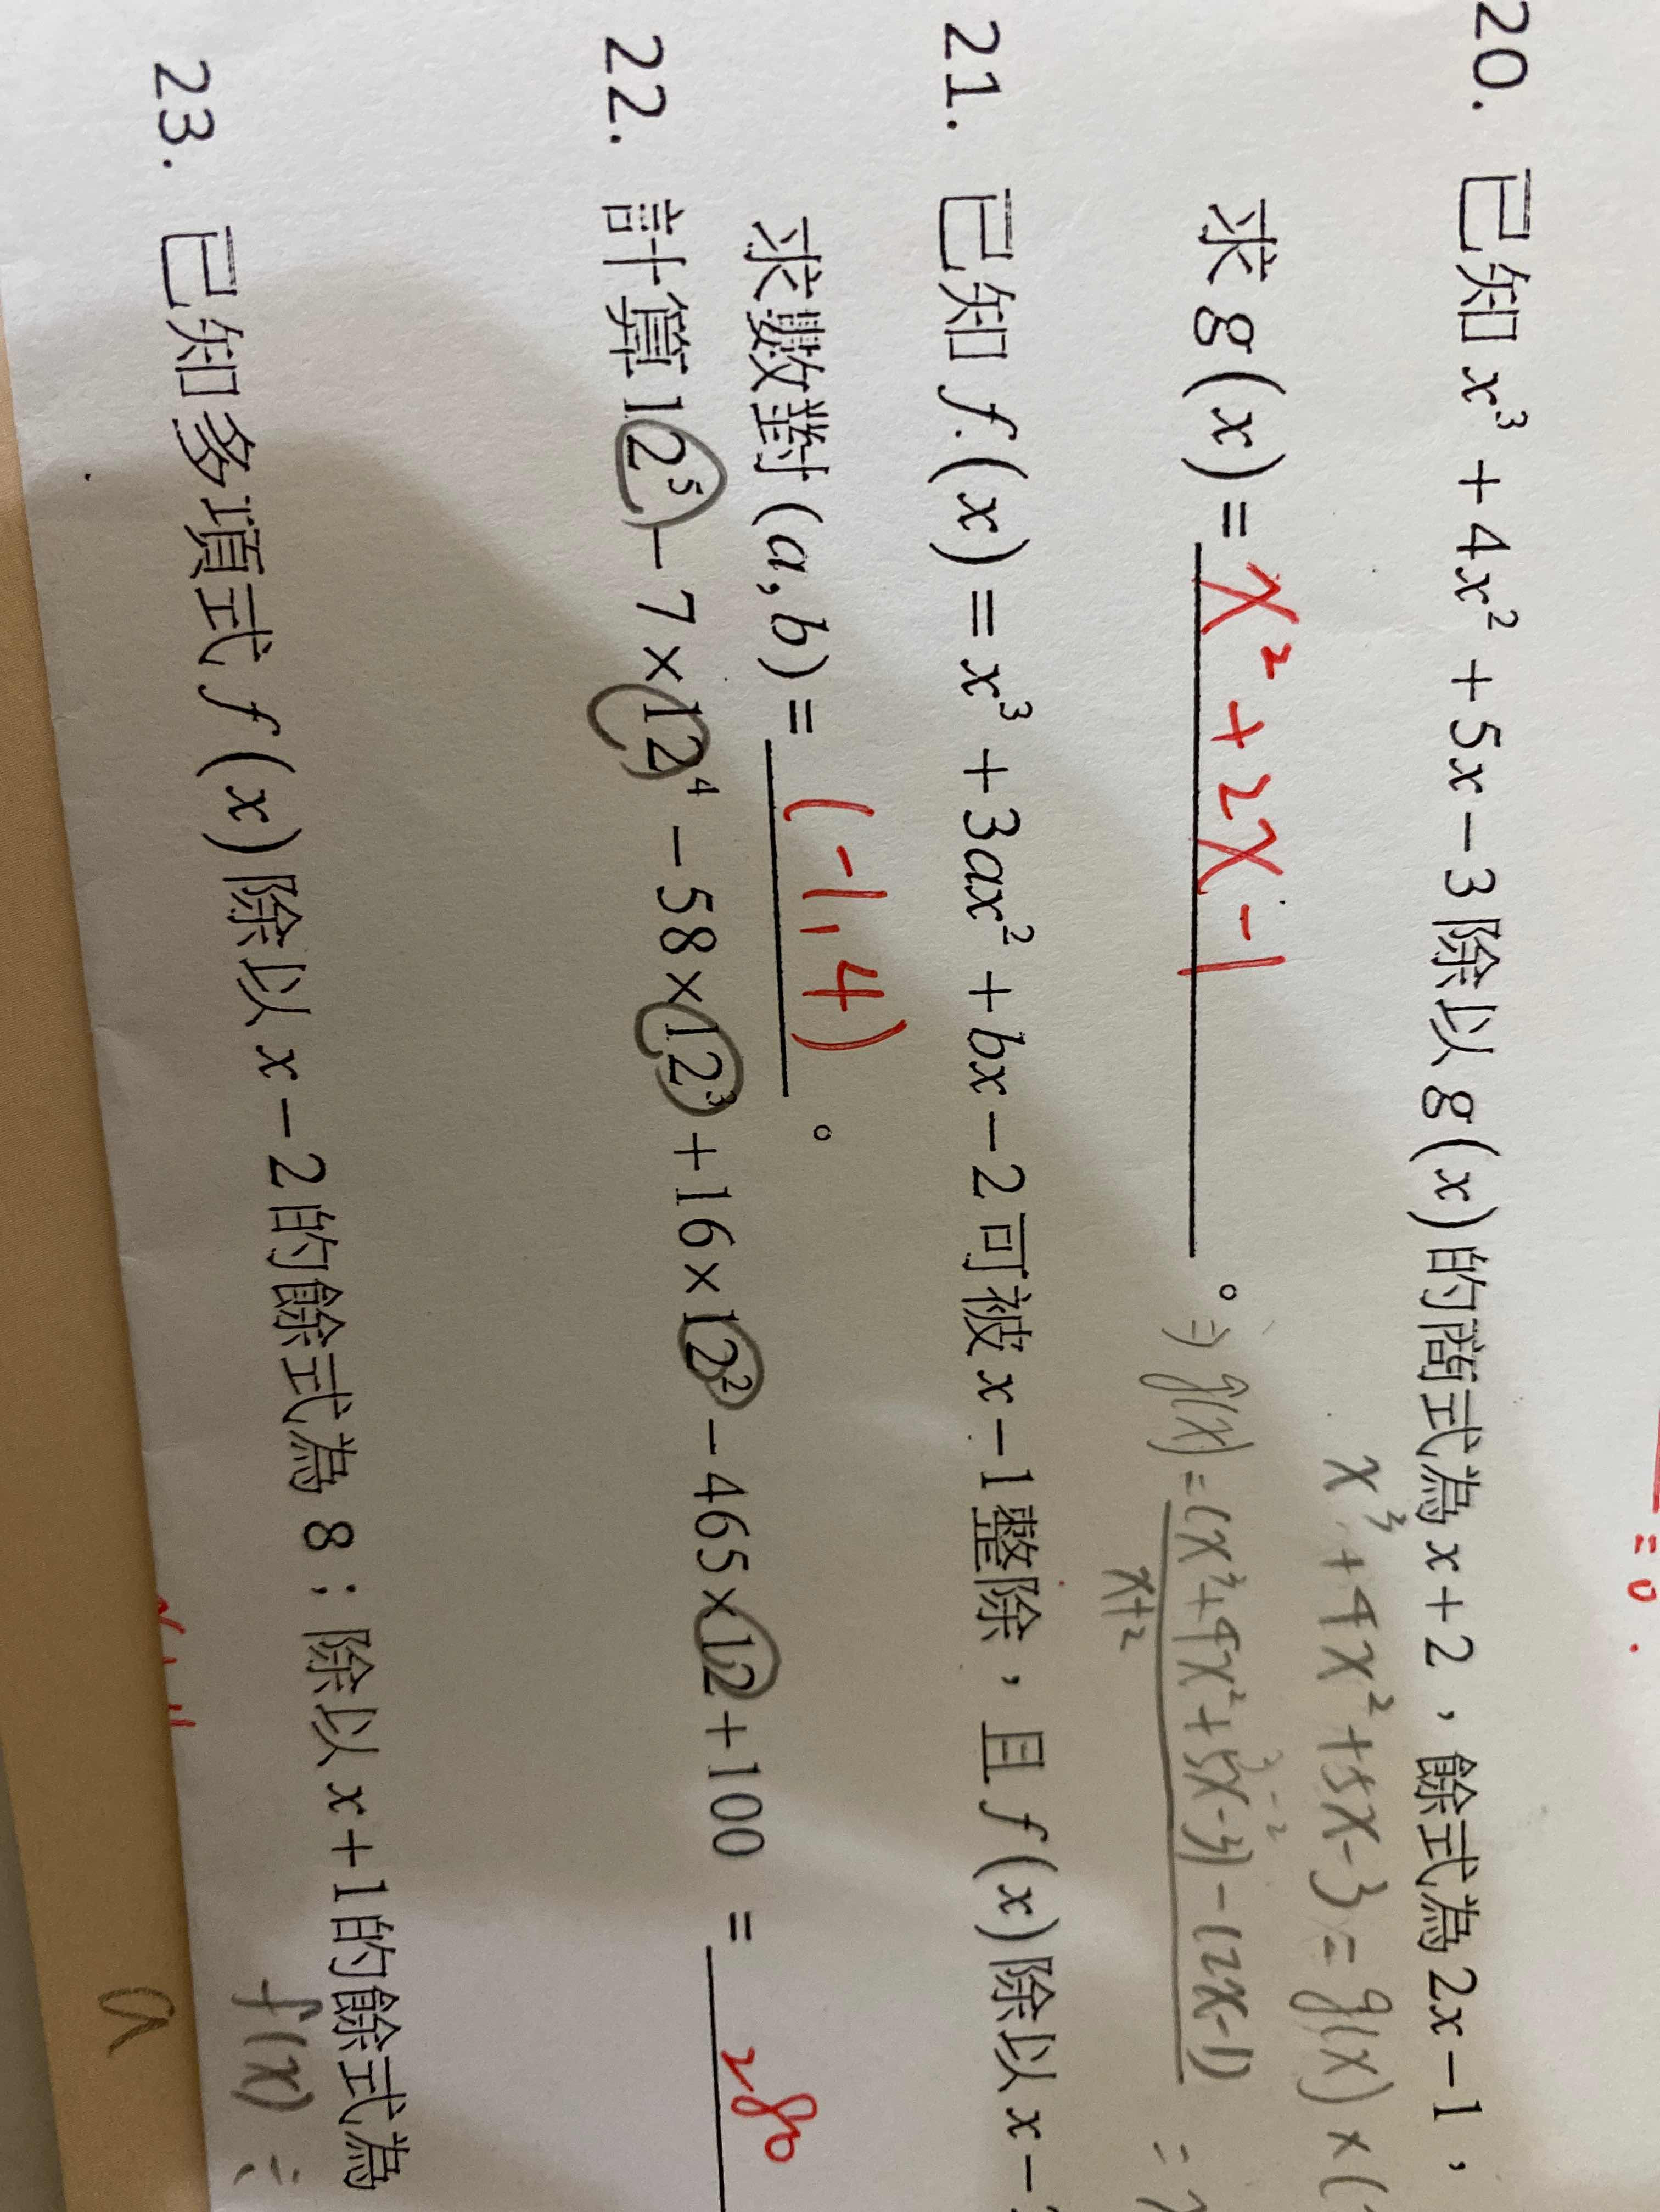 = 0 .
20. 已知 x³ + 4x² + 5x − 3 除以 g(x) 的商式為 x + 2，餘式為 2x − 1，
x³ + 4x² + 5x − 3 = g(x) × (
求 g(x) = x² + 2x − 1 。 ⇒ g(x) = (x³ + 4x² + 5x − 3) − (2x − 1)
x+2
21. 已知 f(x) = x³ + 3ax² + bx − 2 可被 x − 1 整除，且 f(x) 除以 x −
求數對 (a, b) = (−1, 4) 。
22. 計算 12⁵ − 7 × 12⁴ − 58 × 12³ + 16 × 12² − 465 × 12 + 100 = 280
23. 已知多項式 f(x) 除以 x − 2 的餘式為 8；除以 x + 1 的餘式為
f(x) =